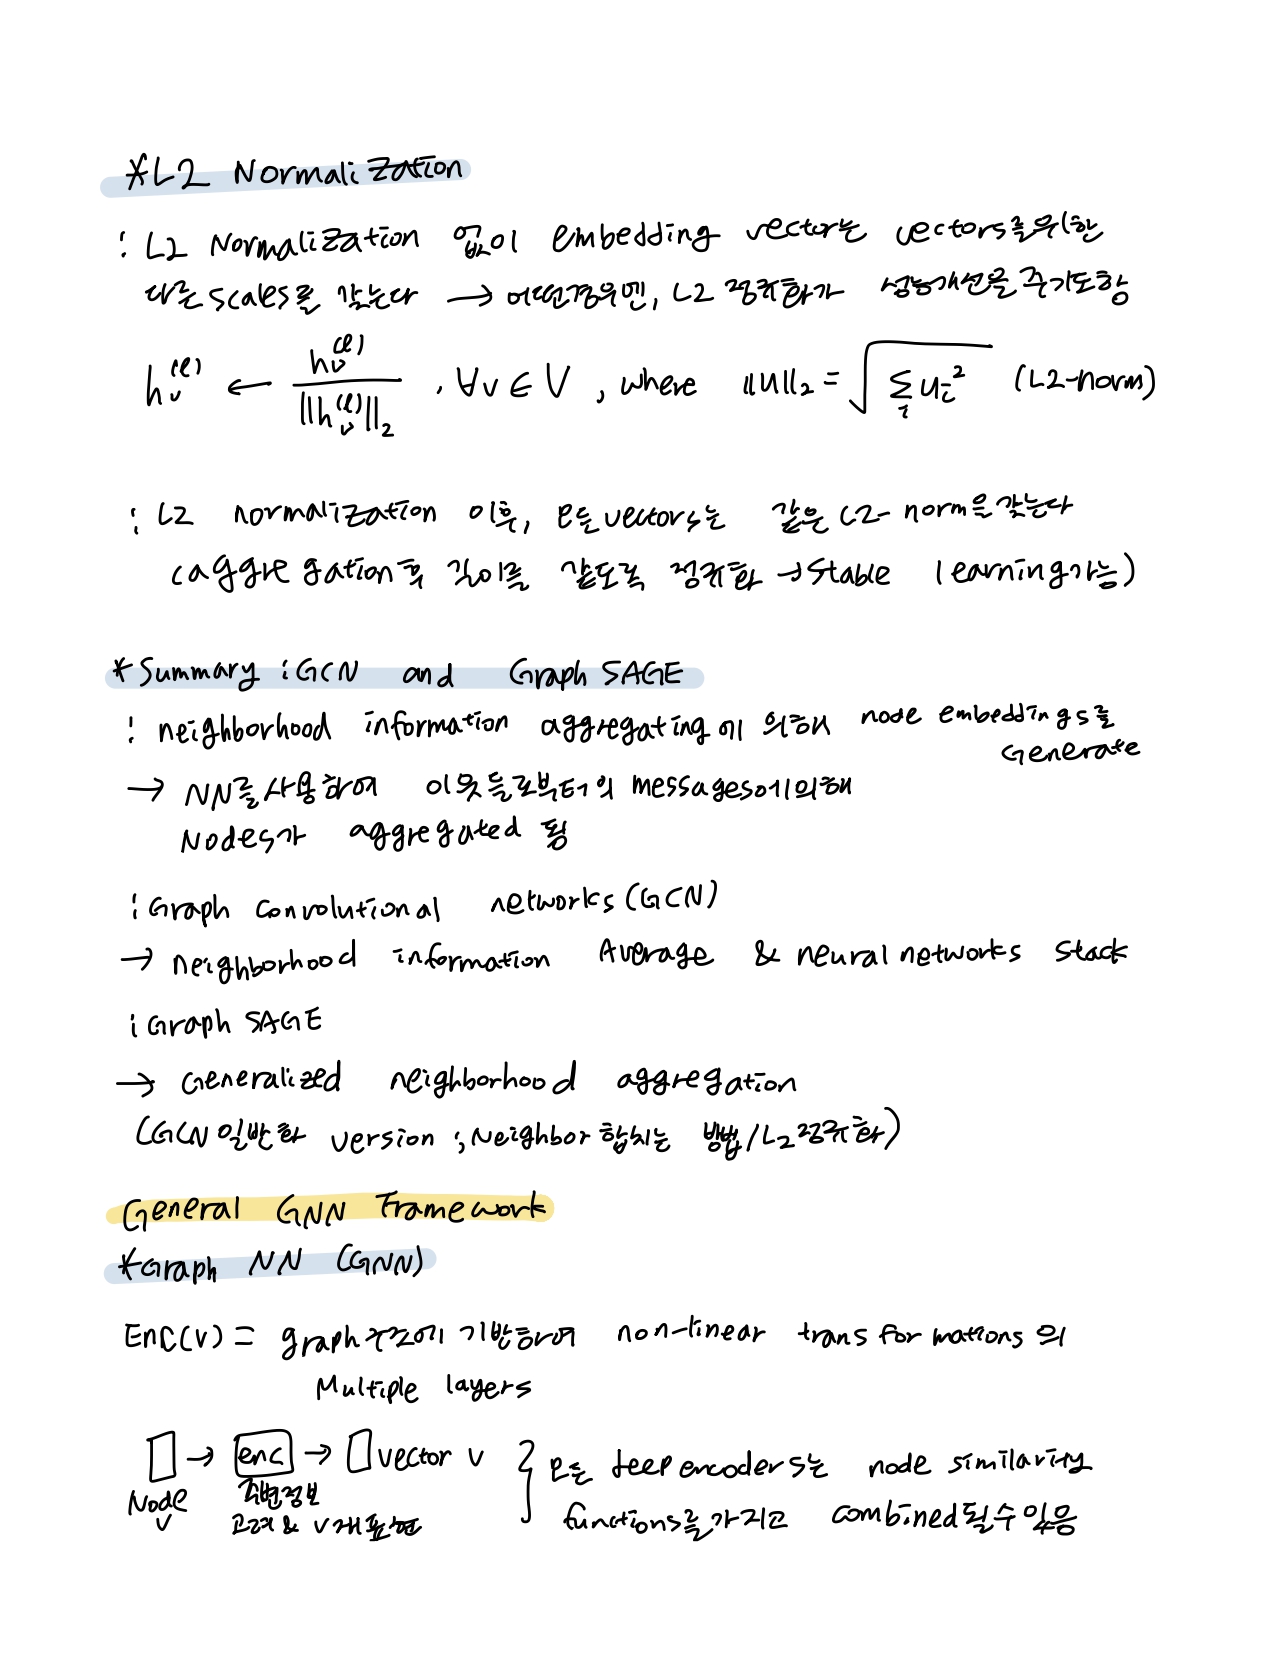 *L2 Normalization
: L2 Normalization 없이 embedding vector는 vectors를위한
다른 scales를 갖는다 → 어떤경우엔, L2 정규화가 성능개선을 주기도함
h_v^(l) ← h_v^(l) / ||h_v^(l)||_2 , ∀v ∈ V , where ||u||_2 = √(Σ_i u_i^2) (L2-norm)
: L2 normalization 이후, 모든vectors는 같은 L2-norm을갖는다
(aggregation후 길이를 같도록 정규화 → Stable learning가능)
*Summary : GCN and GraphSAGE
: neighborhood information aggregating에 의해 node embeddings를
Generate
→ NN를사용하여 이웃들로부터의 messages에의해
Nodes가 aggregated 됨
: Graph convolutional networks(GCN)
→ neighborhood information Average & neural networks stack
: GraphSAGE
→ Generalized neighborhood aggregation
(GCN일반화 version ; Neighbor합치는 방법/L2정규화)
General GNN Framework
*Graph NN (GNN)
Enc(v) = graph구조에 기반하여 non-linear transformations의
Multiple layers
→ enc → vector v } 모든 deep encoders는 node similarity
Node v 주변정보 functions를가지고 combined될수있음
고려 & v재표현